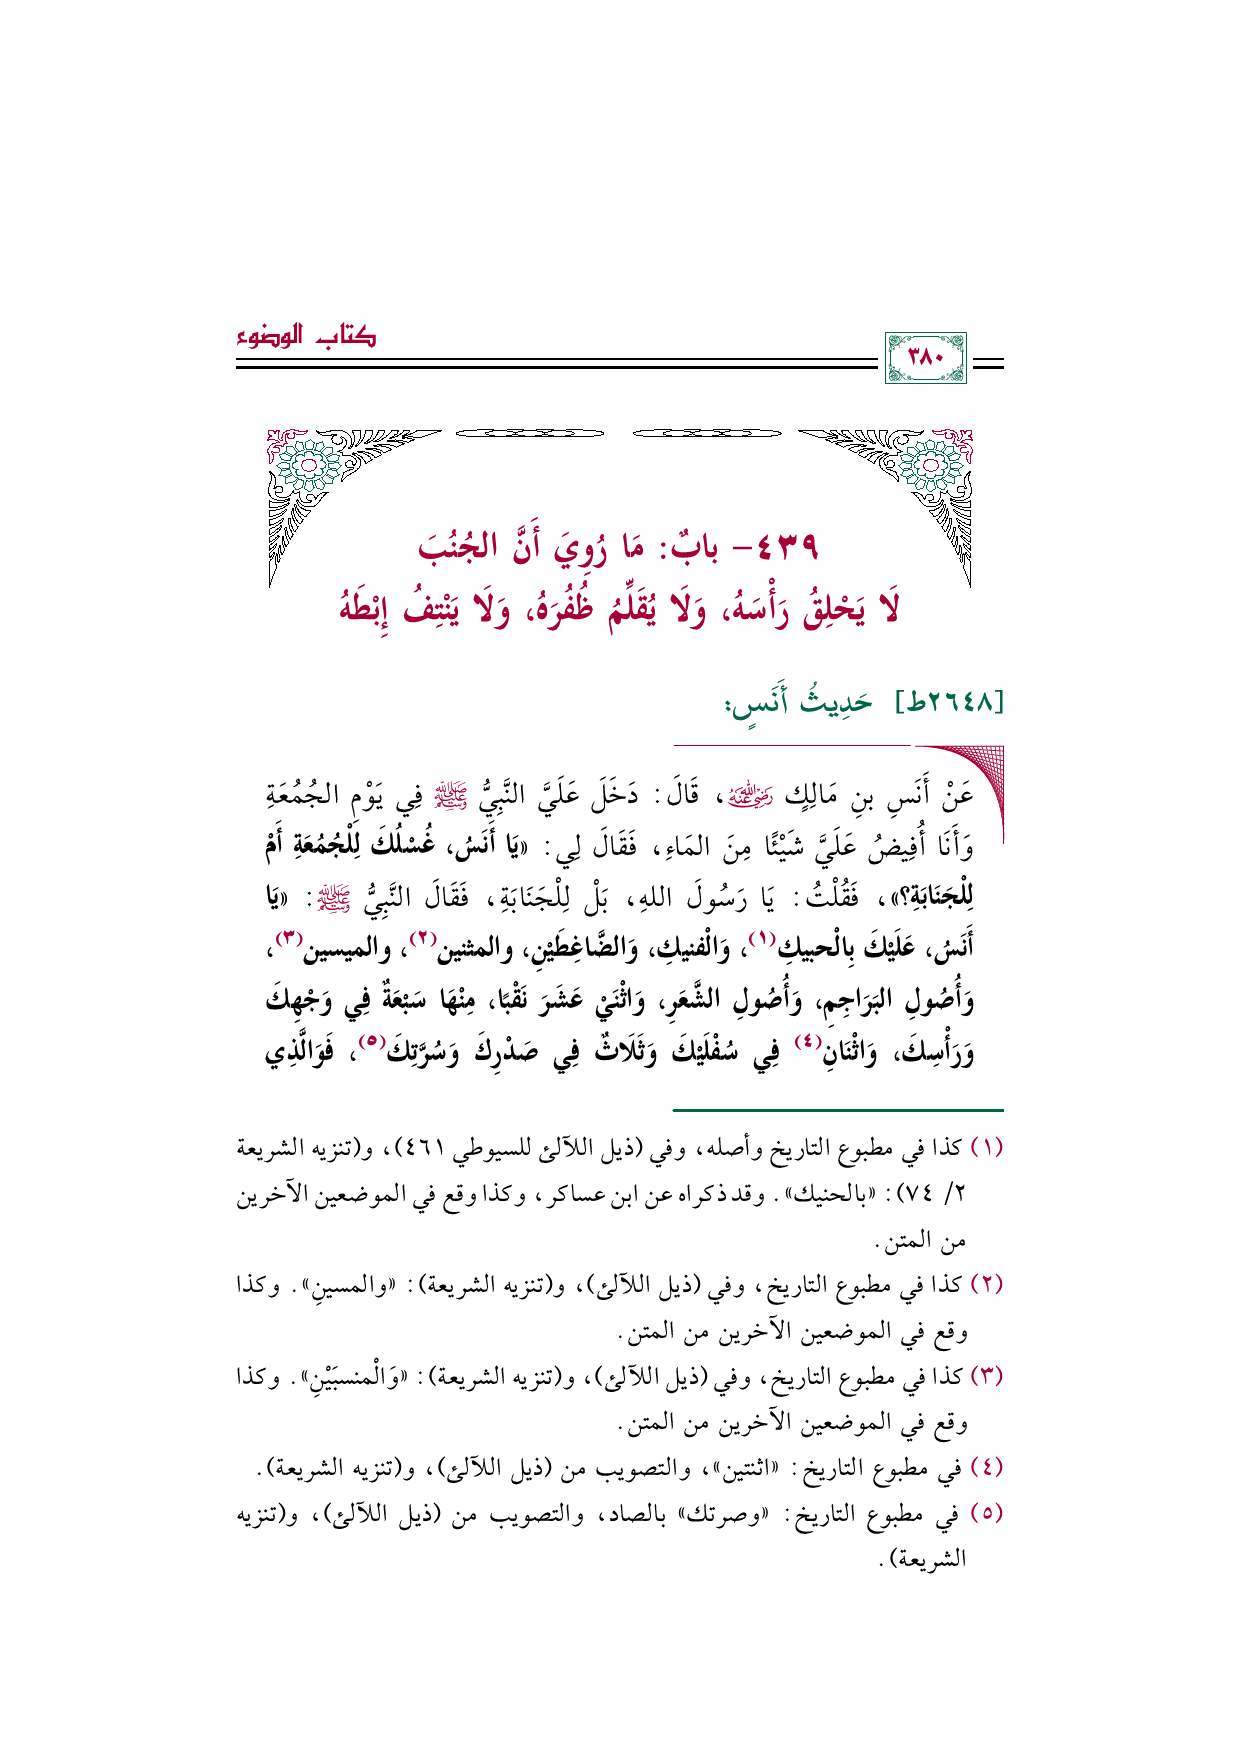 كتاب الوضوء
٣٨٠
٤٣٩- بابٌ: مَا رُوِيَ أَنَّ الجُنُبَ
لَا يَحْلِقُ رَأْسَهُ، وَلَا يُقَلِّمُ ظُفُرَهُ، وَلَا يَنْتِفُ إِبْطَهُ
[٢٦٤٨ط] حَدِيثُ أَنَسٍ:
عَنْ أَنَسِ بنِ مَالِكٍ رضي الله عنه، قَالَ: دَخَلَ عَلَيَّ النَّبِيُّ ﷺ فِي يَوْمِ الجُمُعَةِ
وَأَنَا أُفِيضُ عَلَيَّ شَيْئًا مِنَ المَاءِ، فَقَالَ لِي: «يَا أَنَسُ، غُسْلُكَ لِلْجُمُعَةِ أَمْ
لِلْجَنَابَةِ؟»، فَقُلْتُ: يَا رَسُولَ اللهِ، بَلْ لِلْجَنَابَةِ، فَقَالَ النَّبِيُّ ﷺ: «يَا
أَنَسُ، عَلَيْكَ بِالْحبيكِ(١)، وَالْفنيكِ، وَالضَّاغِطَيْنِ، والمثنين(٢)، والميسين(٣)،
وَأُصُولِ البَرَاجِمِ، وَأُصُولِ الشَّعَرِ، وَاثْنَيْ عَشَرَ نَقْبًا، مِنْهَا سَبْعَةٌ فِي وَجْهِكَ
وَرَأْسِكَ، وَاثْنَانِ(٤) فِي سُفْلَيْكَ وَثَلَاثٌ فِي صَدْرِكَ وَسُرَّتِكَ(٥)، فَوَالَّذِي
(١) كذا في مطبوع التاريخ وأصله، وفي (ذيل اللآلئ للسيوطي ٤٦١)، و(تنزيه الشريعة
٢/ ٧٤): «بالحنيك». وقد ذكراه عن ابن عساكر، وكذا وقع في الموضعين الآخرين
من المتن.
(٢) كذا في مطبوع التاريخ، وفي (ذيل اللآلئ)، و(تنزيه الشريعة): «والمسينِ». وكذا
وقع في الموضعين الآخرين من المتن.
(٣) كذا في مطبوع التاريخ، وفي (ذيل اللآلئ)، و(تنزيه الشريعة): «وَالْمنسبَيْنِ». وكذا
وقع في الموضعين الآخرين من المتن.
(٤) في مطبوع التاريخ: «اثنتين»، والتصويب من (ذيل اللآلئ)، و(تنزيه الشريعة).
(٥) في مطبوع التاريخ: «وصرتك» بالصاد، والتصويب من (ذيل اللآلئ)، و(تنزيه
الشريعة).